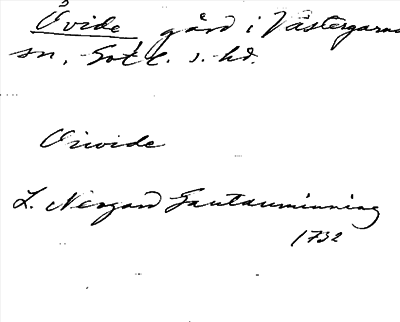 Övide, gård i Västergarns
sn, Gotl. s. hd.
Oivide
L. Nergard Gautauminning
1732